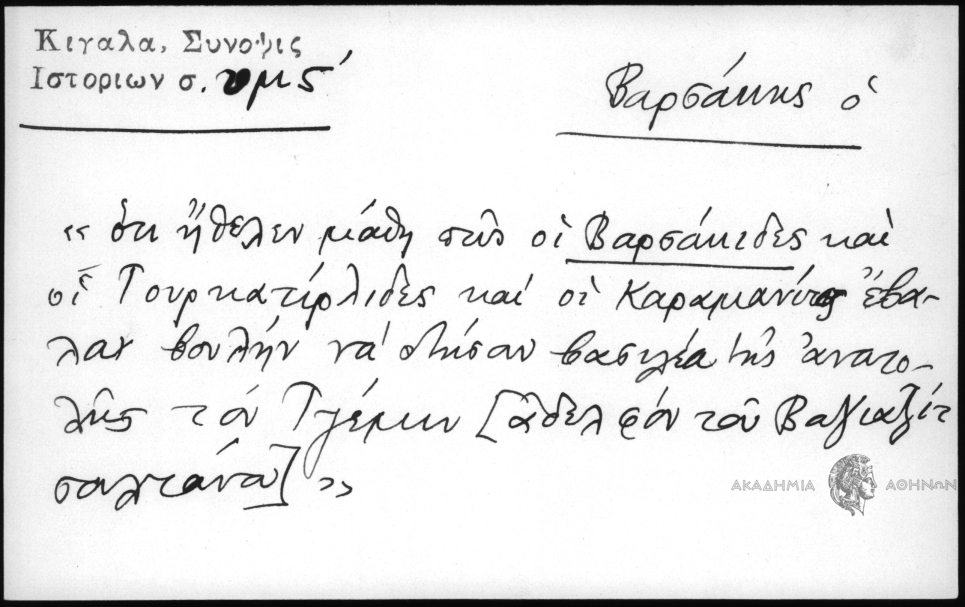 Κιγαλα, Συνοψις
Ιστοριων σ. υμς΄
Βαρσάκης ὁ
« ὅτι ἤθελεν μάθῃ πῶς οἱ Βαρσάκιδες καὶ
οἱ Τουργκατιρλίδες καὶ οἱ Καραμανίτες ἔβα-
λαν βουλὴν νὰ στήσαν βασιλέα τῆς ἀνατο-
λῆς τὸν Τζέμην [ἀδελφὸν τοῦ Βαγιαζὶτ
σουλτάνου] »
ΑΚΑΔΗΜΙΑ ΑΘΗΝΩΝ